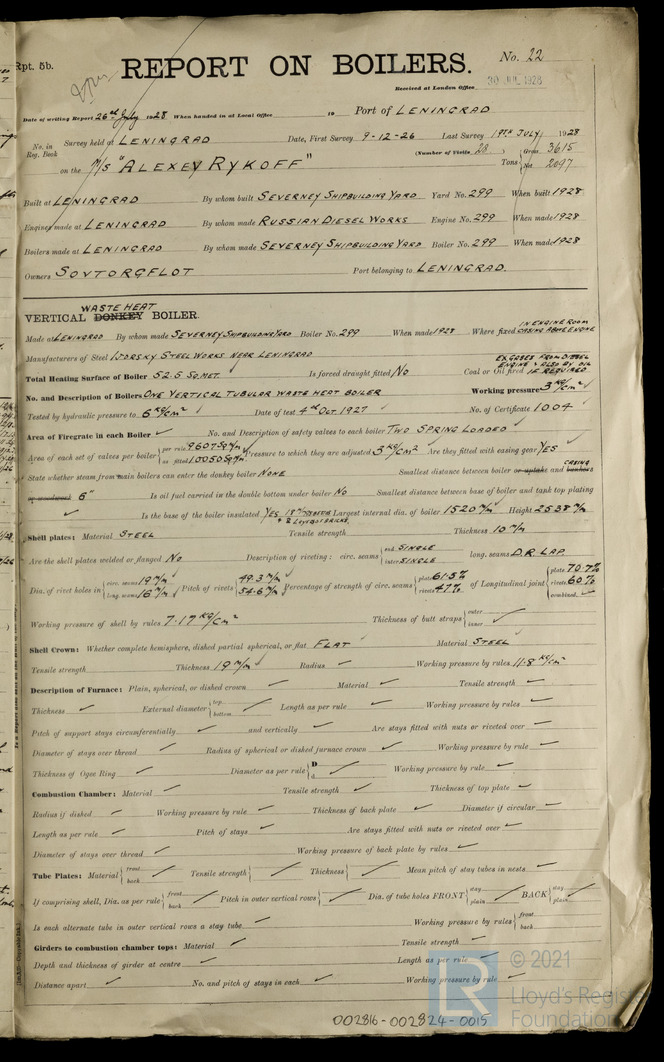 Rpt. 5b.
REPORT ON BOILERS.
No. 22
Received at London Office 30 JUL 1928
Date of writing Report 26th July 1928 When handed in at Local Office 19 Port of LENINGRAD
No. in Reg. Book Survey held at LENINGRAD Date, First Survey 9-12-26 Last Survey 19TH JULY 1928
(Number of Visits 28)
on the M/S "ALEXEY RYKOFF" Tons Gross 3615 Net 2097
Built at LENINGRAD By whom built SEVERNEY SHIPBUILDING YARD Yard No. 299 When built 1928
Engines made at LENINGRAD By whom made RUSSIAN DIESEL WORKS Engine No. 299 When made 1928
Boilers made at LENINGRAD By whom made SEVERNEY SHIPBUILDING YARD Boiler No. 299 When made 1928
Owners SOVTORGFLOT Port belonging to LENINGRAD.
WASTE HEAT
VERTICAL DONKEY BOILER.
Made at LENINGRAD By whom made SEVERNEY SHIPBUILDING YARD Boiler No. 299 When made 1928 Where fixed IN ENGINE ROOM CASING ABOVE ENGINE
Manufacturers of Steel IJORSKY STEEL WORKS NEAR LENINGRAD
Total Heating Surface of Boiler 52.5 SQ.MET. Is forced draught fitted NO Coal or Oil fired EX GASES FROM DIESEL ENGINE & ALSO BY OIL IF REQUIRED
No. and Description of Boilers ONE VERTICAL TUBULAR WASTE HEAT BOILER Working pressure 3 KG/CM²
Tested by hydraulic pressure to 6 KG/CM² Date of test 4th OCT. 1927 No. of Certificate 1004
Area of Firegrate in each Boiler ✓ No. and Description of safety valves to each boiler TWO SPRING LOADED
Area of each set of valves per boiler per rule 9607 SQ M/M as fitted 10050 SQ M/M Pressure to which they are adjusted 3 KG/CM² Are they fitted with easing gear YES
State whether steam from main boilers can enter the donkey boiler NONE Smallest distance between boiler or uptake and bunkers CASING
or woodwork 6" Is oil fuel carried in the double bottom under boiler NO Smallest distance between base of boiler and tank top plating
✓ Is the base of the boiler insulated YES, Largest internal dia. of boiler 1520 M/M Height 2538 M/M
Shell plates: Material STEEL Tensile strength Thickness 10 M/M
Are the shell plates welded or flanged NO Description of riveting: circ. seams end SINGLE inter SINGLE long. seams D.R. LAP.
Dia. of rivet holes in circ. seams 19 M/M long. seams 16 M/M Pitch of rivets 49.3 M/M 54.6 M/M Percentage of strength of circ. seams plate 61.5% rivets 47% of Longitudinal joint plate 70.7% rivets 60% combined ✓
Working pressure of shell by rules 7.17 KG/CM² Thickness of butt straps outer inner ✓
Shell Crown: Whether complete hemisphere, dished partial spherical, or flat FLAT Material STEEL
Tensile strength Thickness 19 M/M Radius ✓ Working pressure by rules 11.8 KG/CM²
Description of Furnace: Plain, spherical, or dished crown ✓ Material ✓ Tensile strength ✓
Thickness ✓ External diameter top bottom ✓ Length as per rule ✓ Working pressure by rules ✓
Pitch of support stays circumferentially ✓ and vertically ✓ Are stays fitted with nuts or riveted over ✓
Diameter of stays over thread ✓ Radius of spherical or dished furnace crown ✓ Working pressure by rule ✓
Thickness of Ogee Ring ✓ Diameter as per rule D d ✓ Working pressure by rule ✓
Combustion Chamber: Material ✓ Tensile strength ✓ Thickness of top plate ✓
Radius if dished ✓ Working pressure by rule ✓ Thickness of back plate ✓ Diameter if circular ✓
Length as per rule ✓ Pitch of stays ✓ Are stays fitted with nuts or riveted over ✓
Diameter of stays over thread ✓ Working pressure of back plate by rules ✓
Tube Plates: Material front back ✓ Tensile strength ✓ Thickness ✓ Mean pitch of stay tubes in nests ✓
If comprising shell, Dia. as per rule front back ✓ Pitch in outer vertical rows ✓ Dia. of tube holes FRONT stay plain ✓ BACK stay plain ✓
Is each alternate tube in outer vertical rows a stay tube ✓ Working pressure by rules front back ✓
Girders to combustion chamber tops: Material ✓ Tensile strength ✓
Depth and thickness of girder at centre ✓ Length as per rule ✓
Distance apart ✓ No. and pitch of stays in each ✓ Working pressure by rule ✓
LR © 2021
Lloyd's Register
Foundation
002816-002824-0015